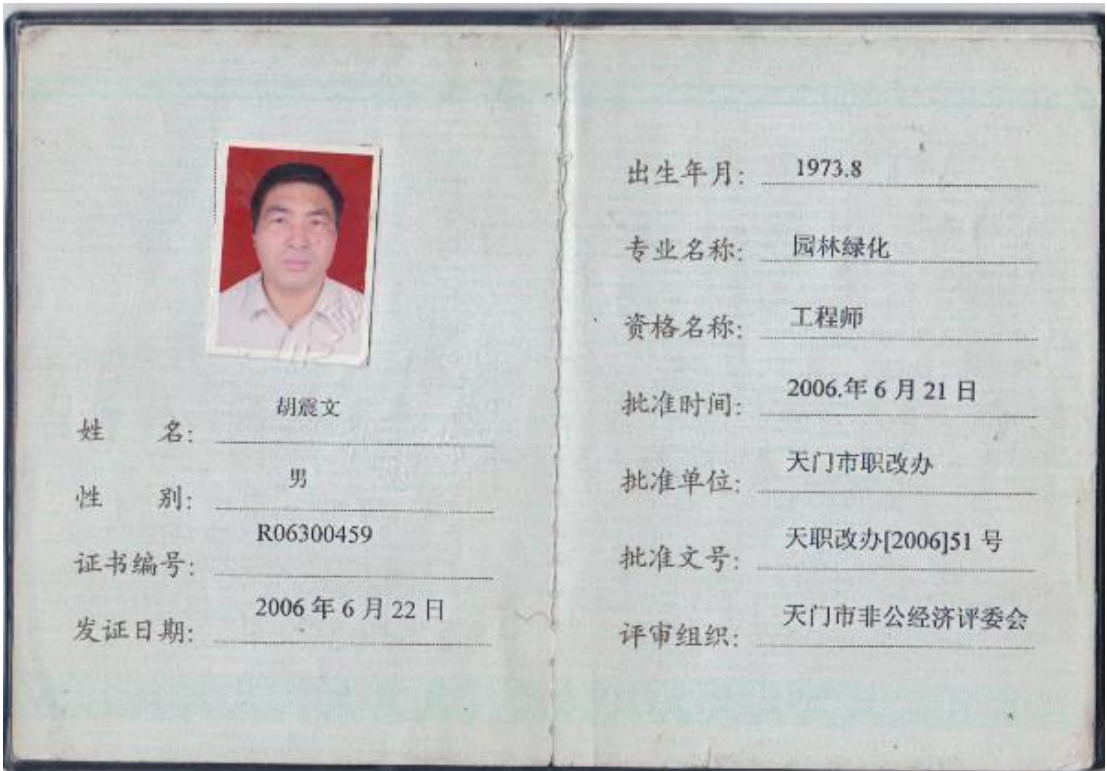 姓 名: 胡震文
性 别: 男
证书编号: R06300459
发证日期: 2006 年 6 月 22 日
出生年月: 1973.8
专业名称: 园林绿化
资格名称: 工程师
批准时间: 2006.年 6 月 21 日
批准单位: 天门市职改办
批准文号: 天职改办[2006]51 号
评审组织: 天门市非公经济评委会